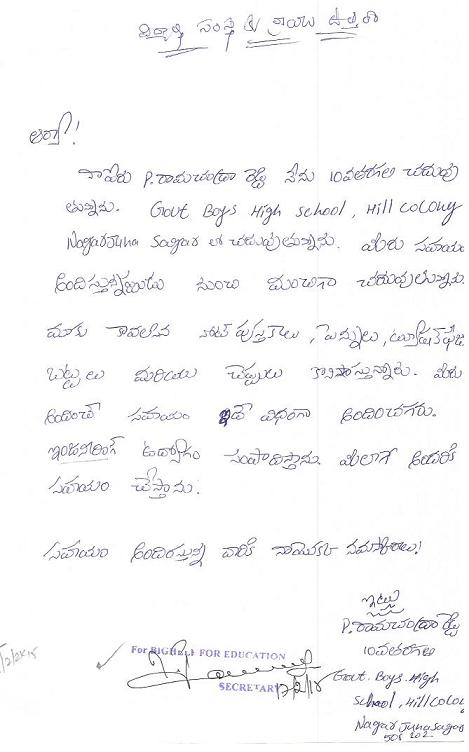 విద్యార్థి సంస్థ కు వ్రాయు ఉత్తరం
ఆర్యా!
నా పేరు P. రామచంద్రా రెడ్డి నేను 10వతరగతి చదువు
తున్నాను. Govt Boys High school, Hill colony
Nagarjuna Sagar లో చదువుతున్నాను. మీరు సహాయం
అందిస్తున్నప్పటి నుంచి మంచిగా చదువుతున్నాను.
మాకు కావలసిన నోట్ పుస్తకాలు, పెన్నులు, ట్యూషన్ ఫీజు
బట్టలు మరియు చెప్పులు కూడా ఇస్తున్నారు. మీరు
అందించే సహాయం ఇదే విధంగా అందించగలరు.
ఇంజనీరింగ్ ఉద్యోగం సంపాదిస్తాను. మీలాగే అందరికి
సహాయం చేస్తాను.
సహాయం అందిస్తున్న వారికి నాయొక్క నమస్కారాలు!
ఇట్లు
P. రామచంద్రా రెడ్డి
10వతరగతి
Govt. Boys. High
school, Hill colony
Nagarjuna sagar
508 202
For BIGHELP FOR EDUCATION
SECRETARY
17/2/15